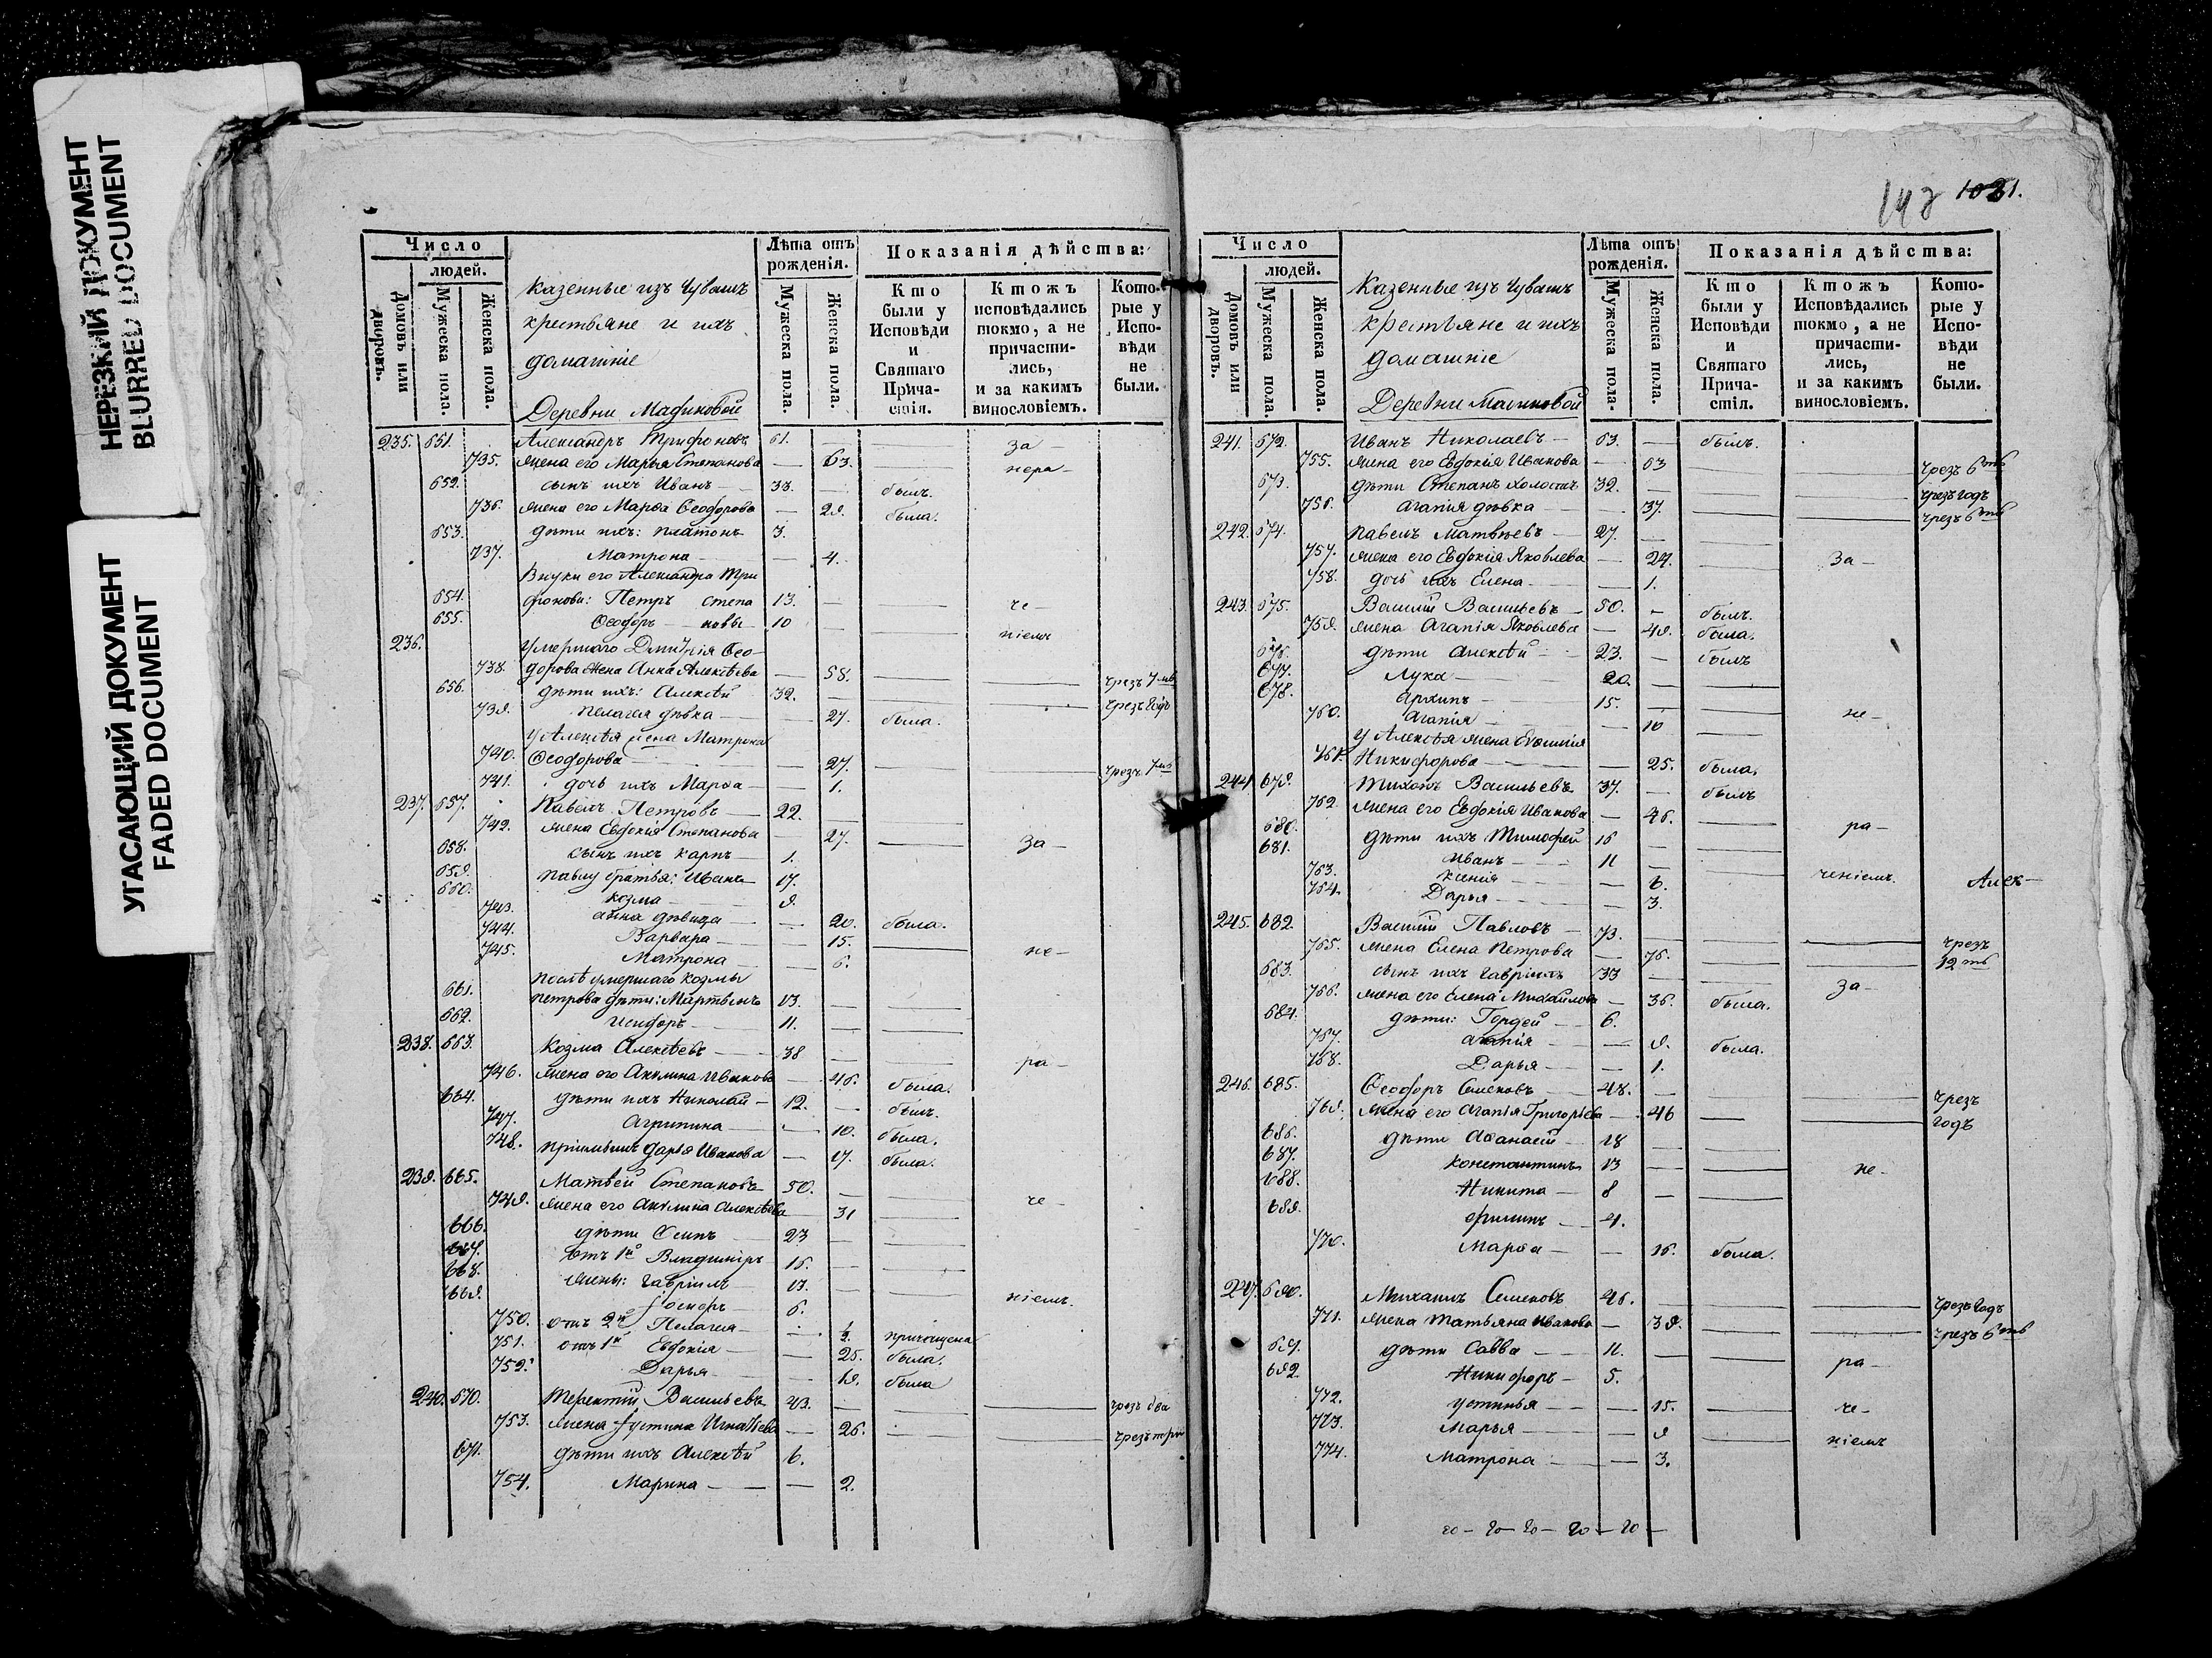 НЕРЕЗКИЙ ДОКУМЕНТ
BLURRED DOCUMENT
УГАСАЮЩИЙ ДОКУМЕНТ
FADED DOCUMENT
Число
людей.
Домовъ или дворовъ.
Мужеска пола.
Женска пола.
Казенные изъ Чувашъ
крестьяне и ихъ
домашніе
Деревни
Лѣта отъ рожденія.
Мужеска пола.
Женска пола.
Показанія дѣйства:
Кто были у Исповѣди и Святаго Причастія.
Ктожъ исповѣдались токмо, а не причастились, и за какимъ винословіемъ.
Которые у Исповѣди не были.
235. 651. Александръ Трифоновъ 61. — за —
735. жена его Марья Степанова — 63. нера —
652. сынъ ихъ Иванъ — 33. — былъ.
736. жена его Марѳа Ѳеодорова — 29. была.
653. дѣти ихъ: Платонъ 3.
737. Матрона — — 4.
Внуки его Александра Три
654. фонова: Петръ Степа 13. — че —
655. Ѳеодоръ — новы 10 — ніемъ
236. Умершаго Димитрія Ѳео-
738. дорова жена Анна Алексѣева — 58. чрезъ 7мь
656. дѣти ихъ: Алексѣй 32. — чрезъ годъ
739. Пелагея дѣвка — — 27. была.
У Алексѣя жена Матрона
740. Ѳеодорова — — 27. чрезъ 7мь
741. дочь ихъ Марѳа — — 1.
237. 657. Павелъ Петровъ — 22.
742. жена Евдокія Степанова — 27. за —
658. сынъ ихъ Карпъ — 1.
659. Павлу братья: Иванъ 17.
660. Козма — 9.
743. Анна дѣвица — — 20. была.
744. Варвара — — 15.
745. Матрона — — 6. не —
послѣ умершаго Козмы
661. Петрова дѣти: Мартынъ 13. —
662. Исидоръ — 11. —
238. 663. Козма Алексѣевъ — 38 — ра —
746. жена его Акулина Иванова — 46. была.
664. дѣти ихъ Николай — 12. — былъ.
747. Агрипина — — 10. была.
748. Дарья Иванова — 17. была.
239. 665. Матвей Степановъ 50. —
749. жена его Акулина Алексѣева — 31 че —
666. дѣти Осипъ — 23 —
667. отъ 1й Владиміръ 16. —
668. жены: Гавріилъ 13. —
669. 6. ніемъ.
750. отъ 2й Пелагея — — причащена
751. отъ 1й Евдокія — — 25. была.
752. Дарья — — 19. была
240. 670. Терентій Васильевъ 43. — чрезъ два
753. жена Устина Игнатьева — 26. чрезъ три
671. дѣти ихъ Алексѣй 6.
754. Марина — — 2.
1031.
Число
людей.
Домовъ или дворовъ.
Мужеска пола.
Женска пола.
Казенные изъ Чувашъ
крестьяне и ихъ
домашніе
Деревни
Лѣта отъ рожденія.
Мужеска пола.
Женска пола.
Показанія дѣйства:
Кто были у Исповѣди и Святаго Причастія.
Ктожъ Исповѣдались токмо, а не причастились, и за какимъ винословіемъ.
Которые у Исповѣди не были.
241. 672. Иванъ Николаевъ — 63. — былъ.
755. жена его Евдокія Иванова — 63 чрезъ 6ть
673. дѣти Степанъ холостъ 32. — чрезъ годъ
756. Агапія дѣвка — 37. чрезъ 6ть
242. 674. Павелъ Матвѣевъ — 27. —
757. жена его Евдокія Яковлева — 27. за —
758. дочь ихъ Елена — — 1.
243. 675. Василій Васильевъ — 50. — былъ.
759. жена Агапія Яковлева — 49. была.
676. дѣти Алексѣй — 23. — былъ
677. Лука — 20. —
678. Архипъ — 15. —
760. Агапія — — 10 не —
У Алексѣя жена
761. Никифорова — — 25. была.
244. 679. Тихонъ Васильевъ 37. — былъ
762. жена его Евдокія Иванова — 46. ра —
680. дѣти ихъ Тимофей 16 —
681. Иванъ — 11 —
763. Ксенія — — 6. ченіемъ. Алек —
764. Дарья — — 3.
245. 682. Василій Павловъ — 73. — чрезъ
765. жена Елена Петрова — 76. 12ть
683. сынъ ихъ Гавріилъ 33 — за —
766. жена его Елена Михайлова — 36. была.
684. дѣти: Гордей — 6.
767. Агапія — — 9. была.
768. Дарья — — 1.
246. 685. Ѳеодоръ Семеновъ — 48. — чрезъ
769. жена его Агапія Григорьева — 46 годъ
686. дѣти Аѳанасій — 18 —
687. Константинъ 13 — не —
688. Никита — 8 —
689. Филипъ — 4.
770. Марѳа — — 16. была.
247. 690. Михаилъ Семеновъ 46. чрезъ годъ
771. жена Татьяна Иванова — 39. чрезъ 6ть
691. дѣти Савва — 11. — ра —
692 Никифоръ — 5.
772. Устинья — — 15. че —
773. Марья — — 9 ніемъ
774. Матрона — — 3.
20 — 20 — 20 — 20 — 20 —